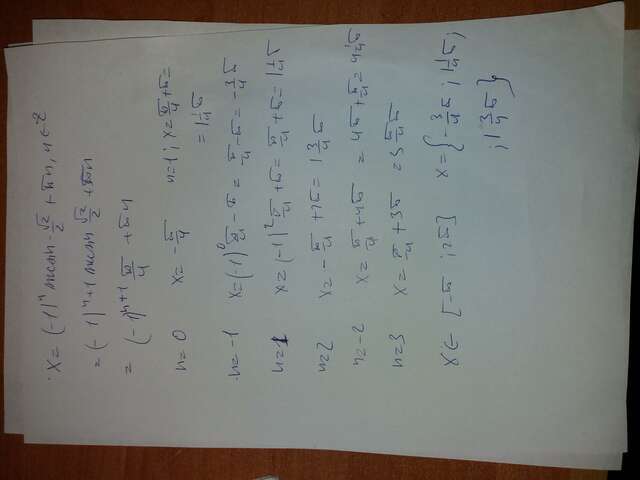 x = (-1)ⁿ arcsin -√2/2 + πn, n ∈ Z
= (-1)ⁿ⁺¹ arcsin √2/2 + πn
= (-1)ⁿ⁺¹ π/4 + πn
n=0 x = -π/4 n=1; x = π/4 + π = 1 1/4 π
n=-1 x = (-1)⁰ π/4 - π = π/4 - π = -3/4 π
n=1 x = (-1)² π/4 + π = π/4 + π = 1 1/4 π
n=2 x = -π/4 + 2π = 1 3/4 π
n=-2 x = π/4 + 4π = 4π + π/4 = 4 1/4 π
n=3 x = π/4 + 3π = 3 1/4 π
x ∈ [-π; 2π] x = {-3/4 π; 1 1/4 π; 1 3/4 π}